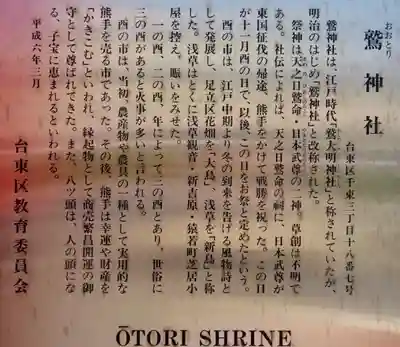 おおとり
鷲神社
台東区千束三丁目十八番七号
鷲神社は、江戸時代「鷲大明神社」と称されていたが、
明治のはじめ「鷲神社」と改称された。
祭神は天之日鷲命、日本武尊の二神。草創は不明で
ある。社伝によれば、天之日鷲命の祠に、日本武尊が
東国征伐の帰途、熊手をかけて戦勝を祝った。この日
が十一月酉の日で、以後、この日をお祭と定めたという。
酉の市は、江戸中期より冬の到来を告げる風物詩と
して発展し、足立区花畑を「大鳥」、浅草を「新鳥」と称
した。浅草はとくに浅草観音・新吉原・猿若町芝居小
屋を控え、賑いをみせた。
一の酉、二の酉、年によって三の酉とあり、世俗に
三の酉があると火事が多いと言われる。
酉の市は、当初、農産物や農具の一種として実用的な
熊手を売る市であった。その後、熊手は幸運や財産を
「かきこむ」といわれ、縁起物として商売繁昌開運の御
守として尊ばれてきた。また、八ッ頭は、人の頭にな
る、子宝に恵まれるといわれる。
平成六年三月
台東区教育委員会
ŌTORI SHRINE